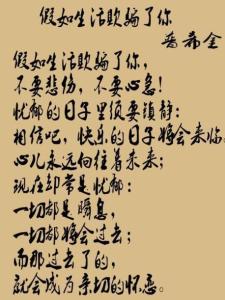 假如生活欺骗了你
普希金
假如生活欺骗了你，
不要悲伤，不要心急！
忧郁的日子里须要镇静：
相信吧，快乐的日子将会来临。
心儿永远向往着未来；
现在却常是忧郁：
一切都是瞬息，
一切都将会过去；
而那过去了的，
就会成为亲切的怀恋。